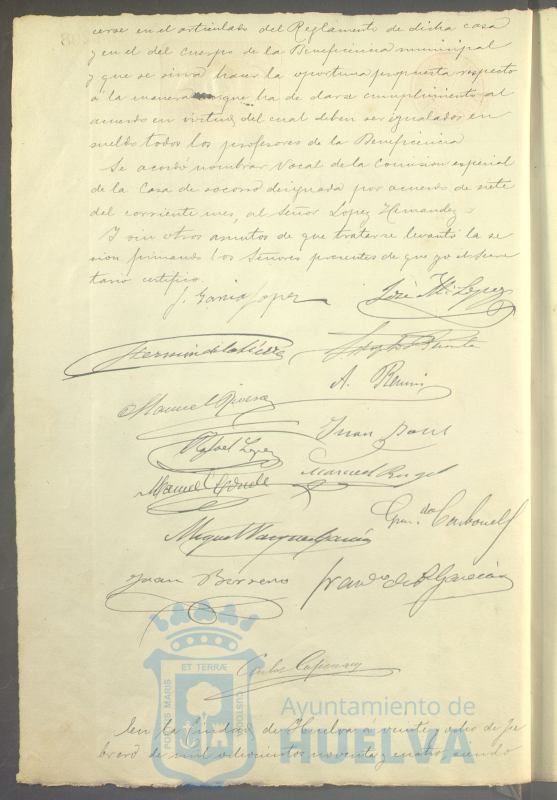 cerse en el articulado del Reglamento de dicha casa
y en el del cuerpo de la Beneficencia municipal
y que se sirva hacer la oportuna propuesta respecto
a la manera en que ha de darse cumplimiento al
acuerdo en virtud del cual deben ser igualados en
sueldo todos los profesores de la Beneficencia
Se acordó nombrar Vocal de la Comision especial
de la Casa de socorro designada por acuerdo de siete
del corriente mes, al Señor Lopez Hernandez
Y sin otros asuntos de que tratarse levantó la se
sion firmando los Señores presentes de que yo el Secre
tario certifico.
J. Garcia Lopez
José Mª Lopez
Manuel Rivera
Rafael Lopez
Juan
Manuel
Manuel
Carbonell
Miguel Vazquez Garcia
Juan Borrero
Garcia
Carlos
ET TERRÆ
PORTUS MARIS
CUSTODIA
Ayuntamiento de
HUELVA
En la ciudad de Huelva á veinte y ocho de Fe
brero de mil ochocientos noventa y cuatro siendo